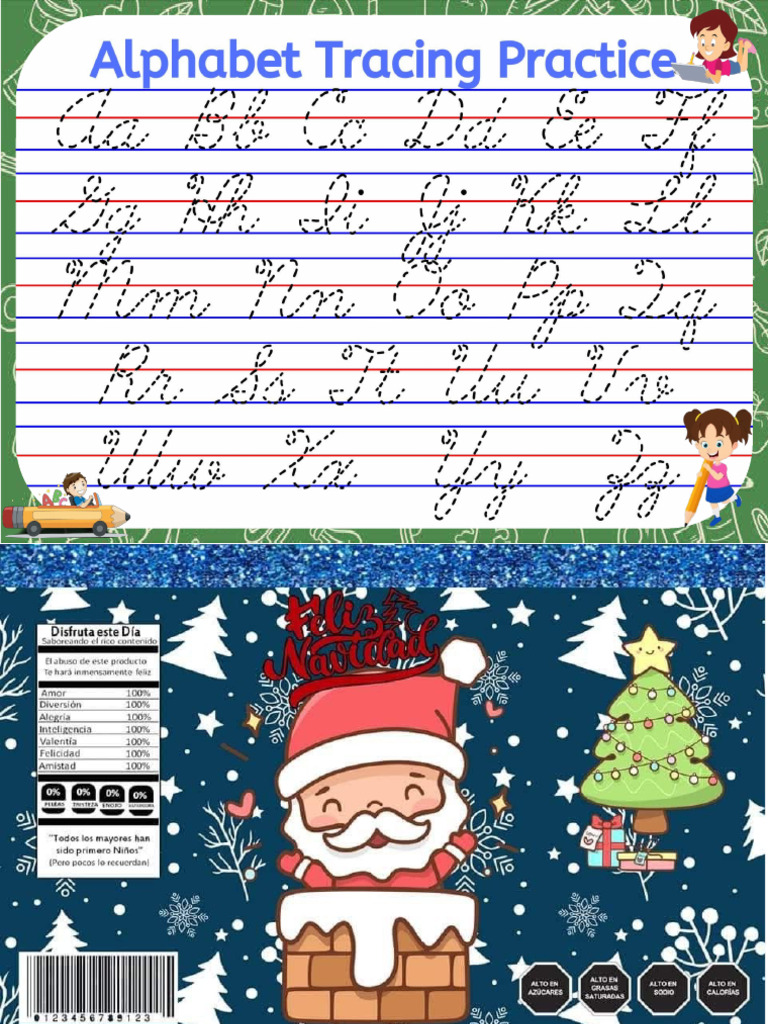 Alphabet Tracing Practice
Aa Bb Cc Dd Ee Ff
Gg Hh Ii Jj Kk Ll
Mm Nn Oo Pp Qq
Rr Ss Tt Uu Vv
Ww Xx Yy Zz
Feliz
Navidad
Disfruta este Día
Saboreando el rico contenido
El abuso de este producto
Te hará inmensamente feliz
Amor 100%
Diversión 100%
Alegría 100%
Inteligencia 100%
Valentía 100%
Felicidad 100%
Amistad 100%
0% 0% 0% 0%
TRISTEZA ENOJO
"Todos los mayores han
sido primero Niños"
(Pero pocos lo recuerdan)
0123456789123
ALTO EN
AZÚCARES
ALTO EN
GRASAS
SATURADAS
ALTO EN
SODIO
ALTO EN
CALORÍAS